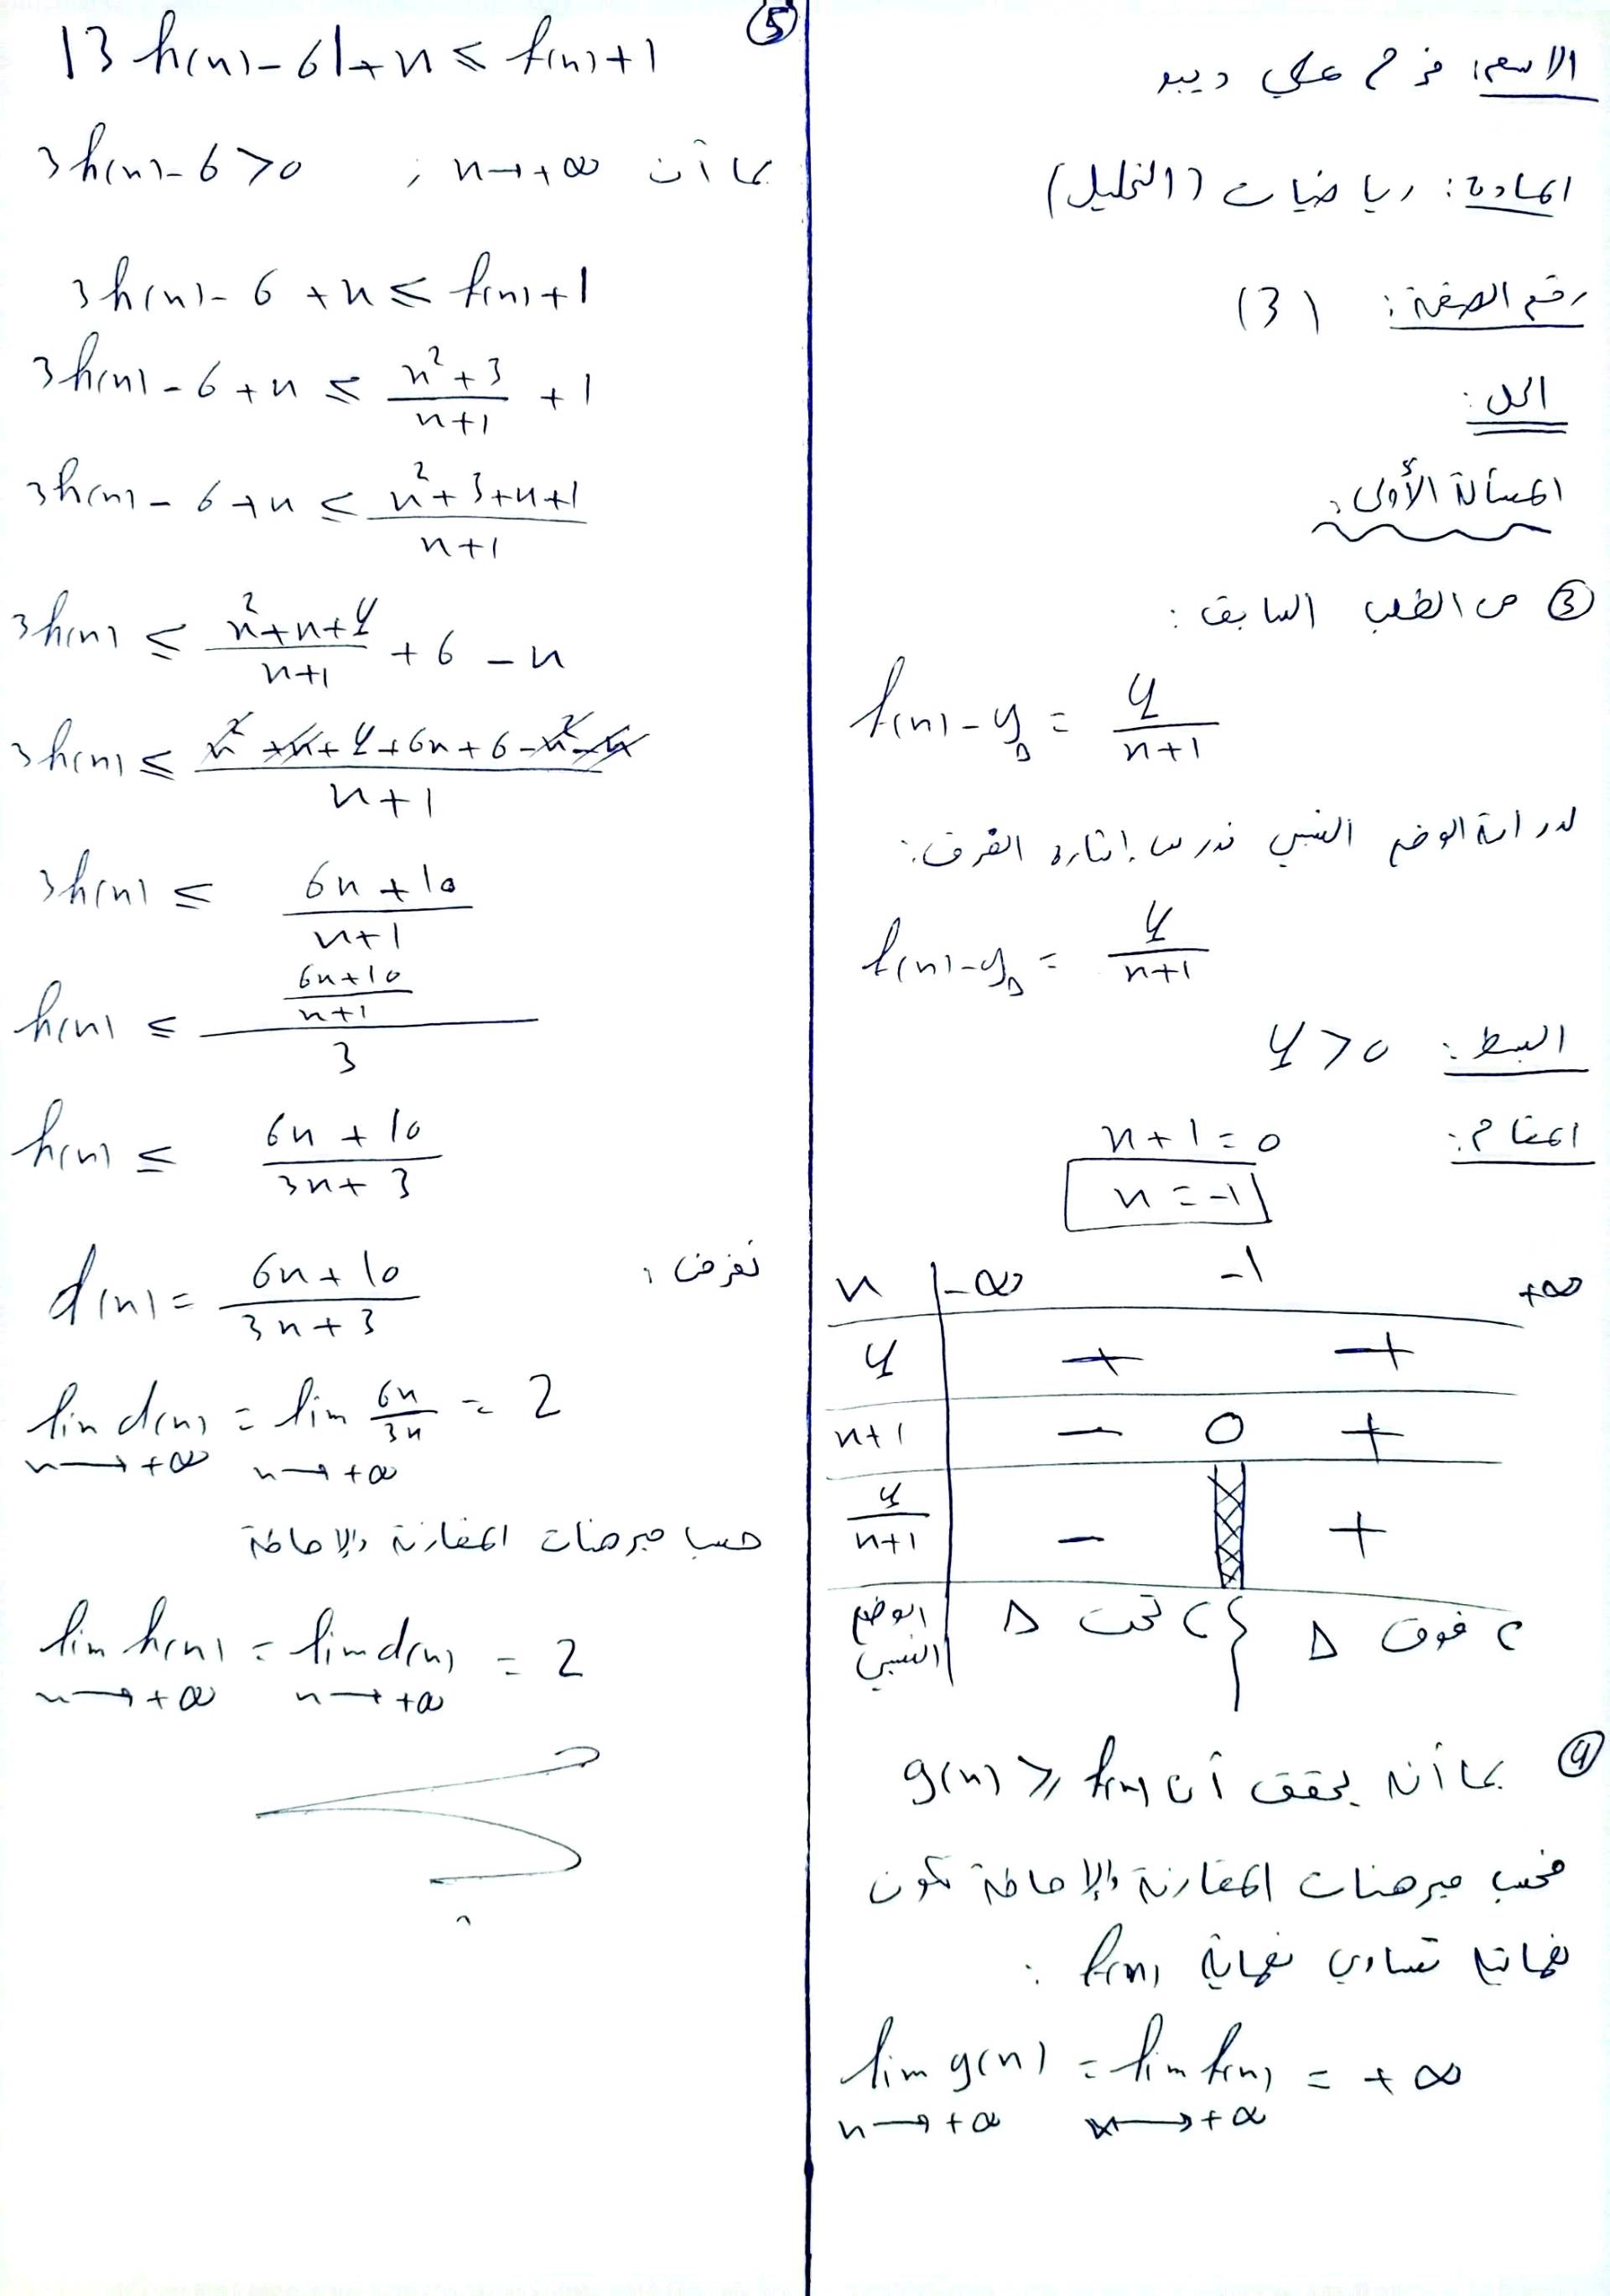 الاسم: فرح علي ديبو
المادة: رياضيات (التحليل)
رقم الصفحة: (3)
الحل:
المسألة الأولى:
③ من الطلب السابق:
f(x) - y_Δ = 4/(x+1)
لدراسة الوضع النسبي ندرس إشارة الفرق:
f(x) - y_Δ = 4/(x+1)
البسط: 4 > 0
المقام: x + 1 = 0
x = -1
x | -∞ -1 +∞
4 | + +
x+1 | - 0 +
4/(x+1) | - +
الوضع النسبي | C تحت Δ C فوق Δ
④ بما أنه يحقق أن g(x) ⩾ f(x)
فحسب مبرهنات المقارنة والإحاطة تكون
نهايته تساوي نهاية f(x) :
lim g(x) = lim f(x) = +∞
x→+∞ x→+∞
⑤
|3h(x) - 6| + x ≤ f(x) + 1
بما أن x→+∞ ; 3h(x) - 6 > 0
3h(x) - 6 + x ≤ f(x) + 1
3h(x) - 6 + x ≤ (x²+3)/(x+1) + 1
3h(x) - 6 + x ≤ (x²+3+x+1)/(x+1)
3h(x) ≤ (x²+x+4)/(x+1) + 6 - x
3h(x) ≤ (x²+x+4+6x+6-x²-x)/(x+1)
3h(x) ≤ (6x+10)/(x+1)
h(x) ≤ ((6x+10)/(x+1))/3
h(x) ≤ (6x+10)/(3x+3)
نفرض: d(x) = (6x+10)/(3x+3)
lim d(x) = lim 6x/3x = 2
x→+∞ x→+∞
حسب مبرهنات المقارنة والإحاطة
lim h(x) = lim d(x) = 2
x→+∞ x→+∞